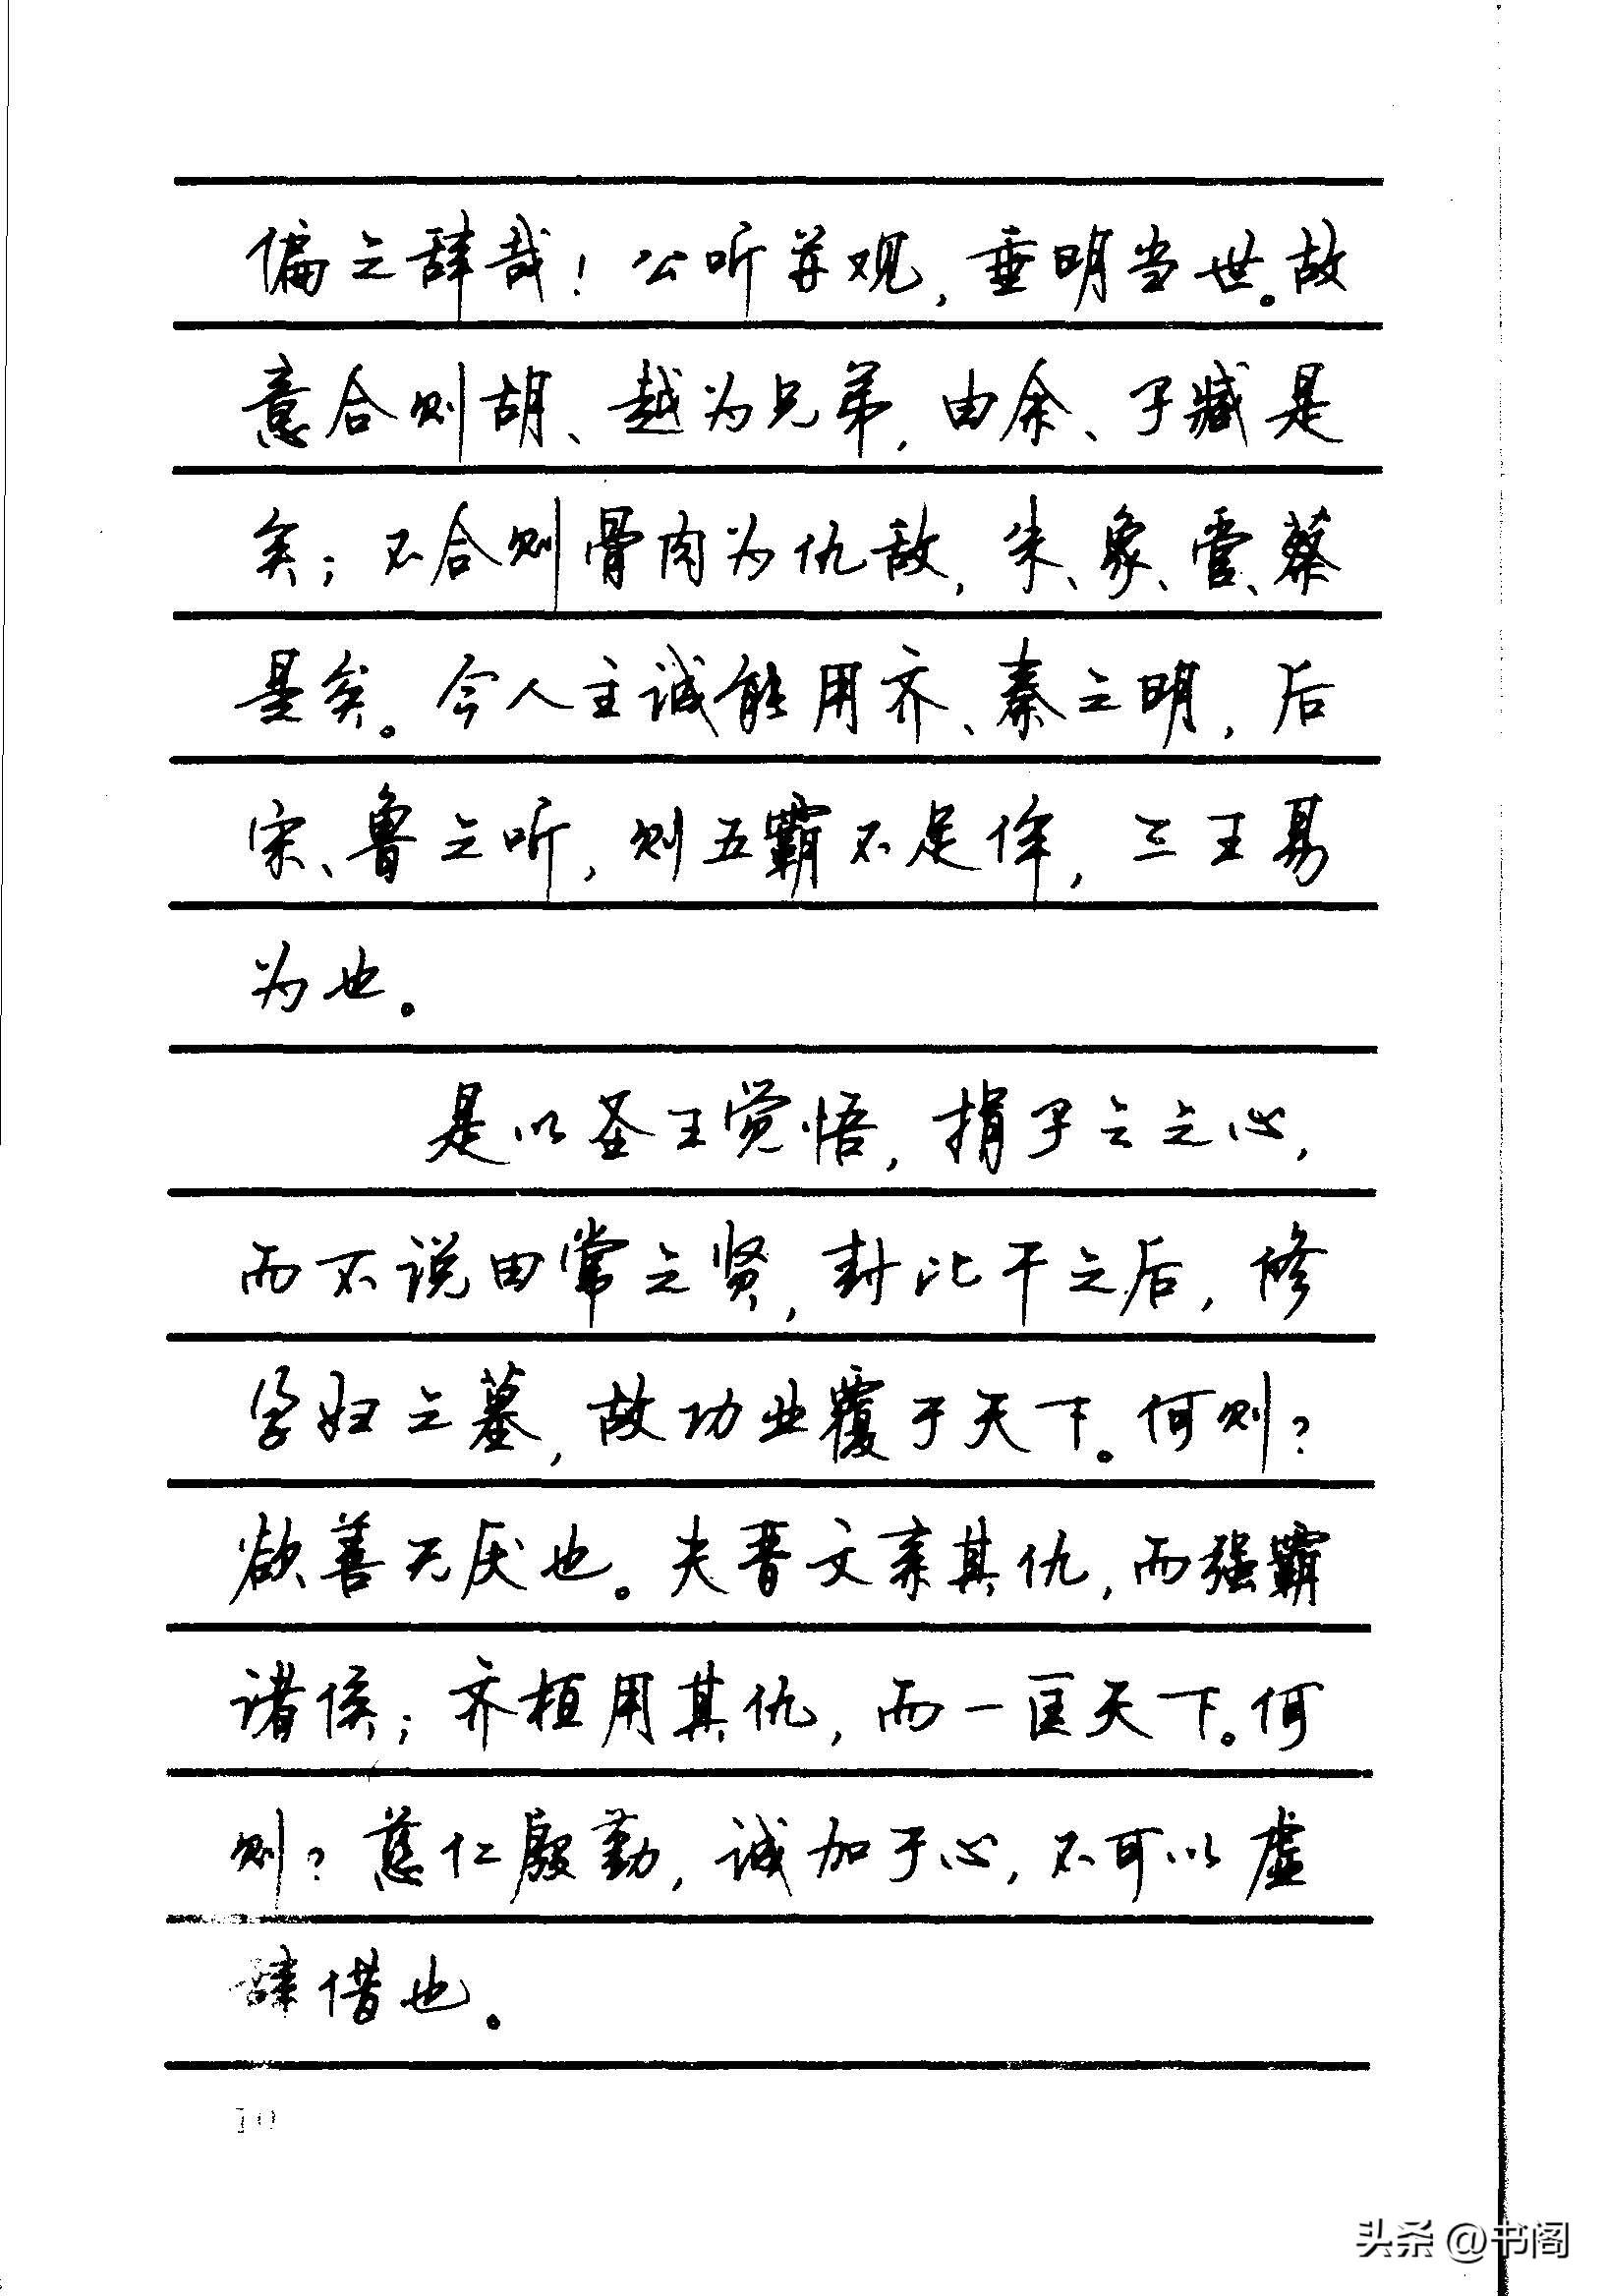 偏之辞哉！公听并观，垂明当世。故
意合则胡、越为兄弟，由余、子臧是
矣；不合则骨肉为仇敌，朱、象、管、蔡
是矣。今人主诚能用齐、秦之明，后
宋、鲁之听，则五霸不足侔，三王易
为也。
是以圣王觉悟，捐子之之心，
而不说田常之贤，封比干之后，修
孕妇之墓，故功业覆于天下。何则？
欲善无厌也。夫晋文亲其仇，而强霸
诸侯；齐桓用其仇，而一匡天下。何
则？慈仁殷勤，诚加于心，不可以虚
辞借也。
10
头条@书阁